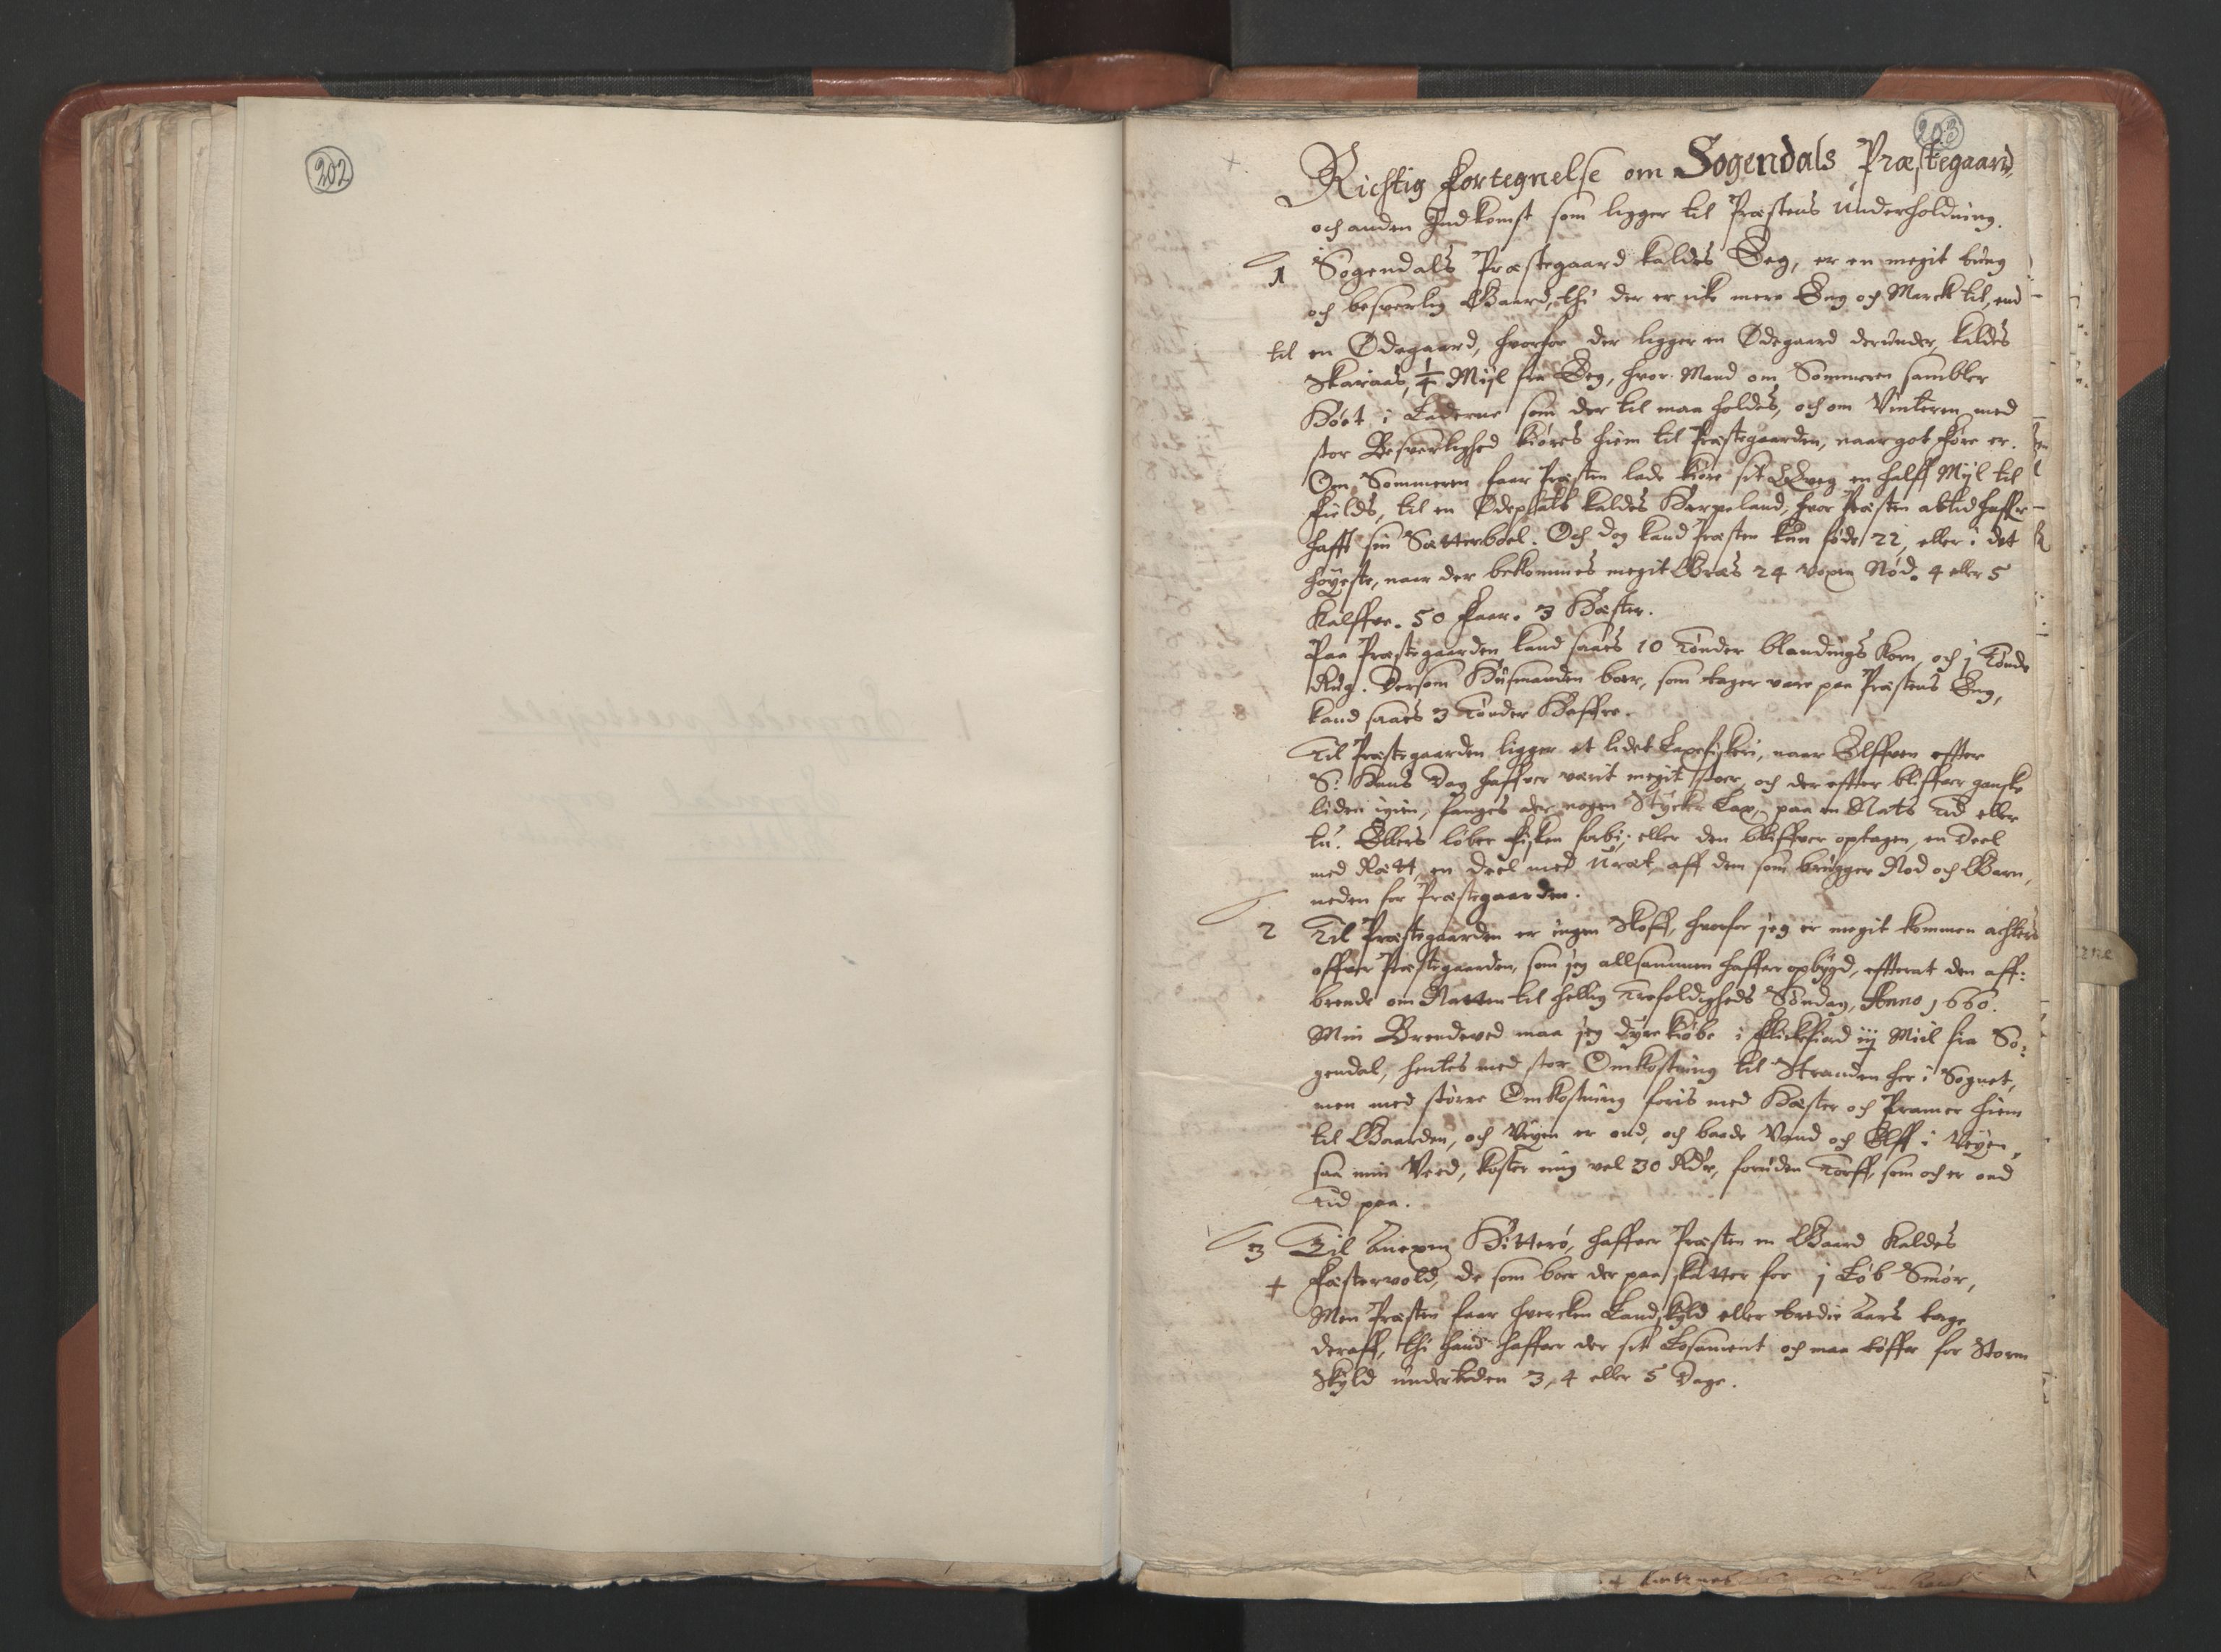 202
203
Richtig Fortegnelse om Sogendals Præstegaard,
och anden Indkomst som ligger til Præstens Underholdning.
1 Sogendals Præstegaard kaldes Eeg, er en megit tung
och besverlig Gaard, thi der er icke mere Eng och Marck til, end
til en Ødegaard, hvorfor der ligger en Ødegaard derunder, kaldes
Skaraas, 1/4 Mijl fra Eeg, hvor Mand om Sommeren sambler
Høet i Laderne som der til maa holdes, och om Vinteren med
stor Besverlighed kiøres hiem til Præstegaarden, naar got føre er.
Om Sommeren faar Præsten lade kiøre sit Qveg en halff Mijl til
Fields, til en Ødeplats kaldes Barpeland, hvor Præsten altid haffr
hafft sin Sætterboel. Och dog kand Præsten kun føde 22, eller i det
høyeste, naar der bekommes megit Græs 24 voxen Nød. 4 eller 5
Kalffve. 50 Faar. 3 Hæster.
Paa Præstegaarden kand saaes 10 Tønder blandings Korn, och j Tønde
Rug. Dersom Husmanden boer, som tager vare paa Præstens Eng,
kand saaes 3 Tønder Haffre.
Til Præstegaarden ligger et lidet Laxefiskeri, naar Elffven effter
S. Hans Dag haffver værit megit stoer, och der effter bliffver ganske
liden igien, fanges der nogen Stycker Lax, paa en Nats Tid eller
tu. Ellers løber Fisken forbi, eller den bliffver optagen, en Deel
med Rætt, en Deel med Uræt, aff dem som brugger Nod och Garn,
neden for Præstegaarden.
2 Til Præstegaarden er ingen Skoff, hvorfor jeg er megit kommen achters
offver Præstegaarden, som jeg allsammen haffver opbygd, effterat den aff-
brende om Natten til hellig Trefoldigheds Søndag, Anno 1660.
Min Brendeved maa jeg dyre kiøbe i Flickefiord iij Miil fra So-
gendal, hentes med stor Omkostning til Stranden her i Sognet,
men med større Omkostning føris med Hæster och Pramer hiem
til Gaarden, och Veyen er ond, och baade Vand och Elff i Veyen,
saa min Veed, koster mig vel 30 Rdr, foruden Torff, som och er ond
Tid paa.
3 Til Anexen Hitterø, haffver Præsten en Gaard kaldes
+ Fæstervold, de som boer der paa skatter for j Løb Smør,
Men Præsten faar hvercken Landskyld eller tredie Aars tage
deraff, thi hand haffver der sit Losament och maa tøffve for Storm
Skyld undertiden 3, 4 eller 5 Dage.